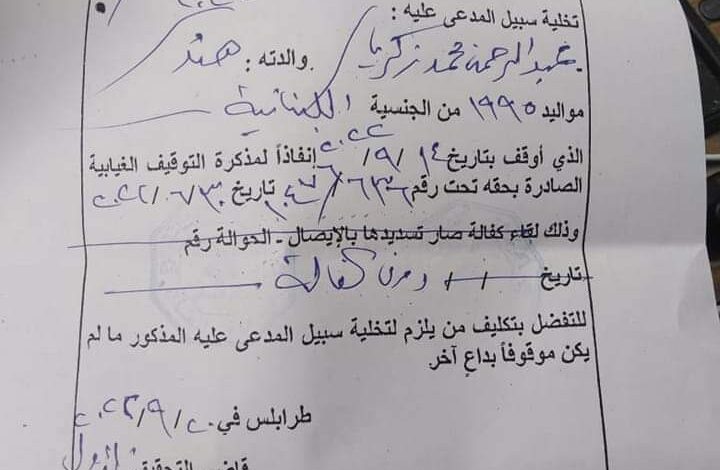 تخلية سبيل المدعى عليه :
عبد الرحمن محمد زكريا والدته : هند
مواليد ١٩٩٥ من الجنسية اللبنانية
الذي أوقف بتاريخ ١٤ / ٩ / ٢٠٢٢ إنفاذاً لمذكرة التوقيف الغيابية
الصادرة بحقه تحت رقم تاريخ ٣٠/٦/٢٠٢٢
وذلك لقاء كفالة صار تسديدها بالإيصال - الحوالة رقم
تاريخ / / دون كفالة
للتفضل بتكليف من يلزم لتخلية سبيل المدعى عليه المذكور ما لم
يكن موقوفاً بداعٍ آخر.
طرابلس في ٢٠/٩/٢٠٢٢
قاضي التحقيق